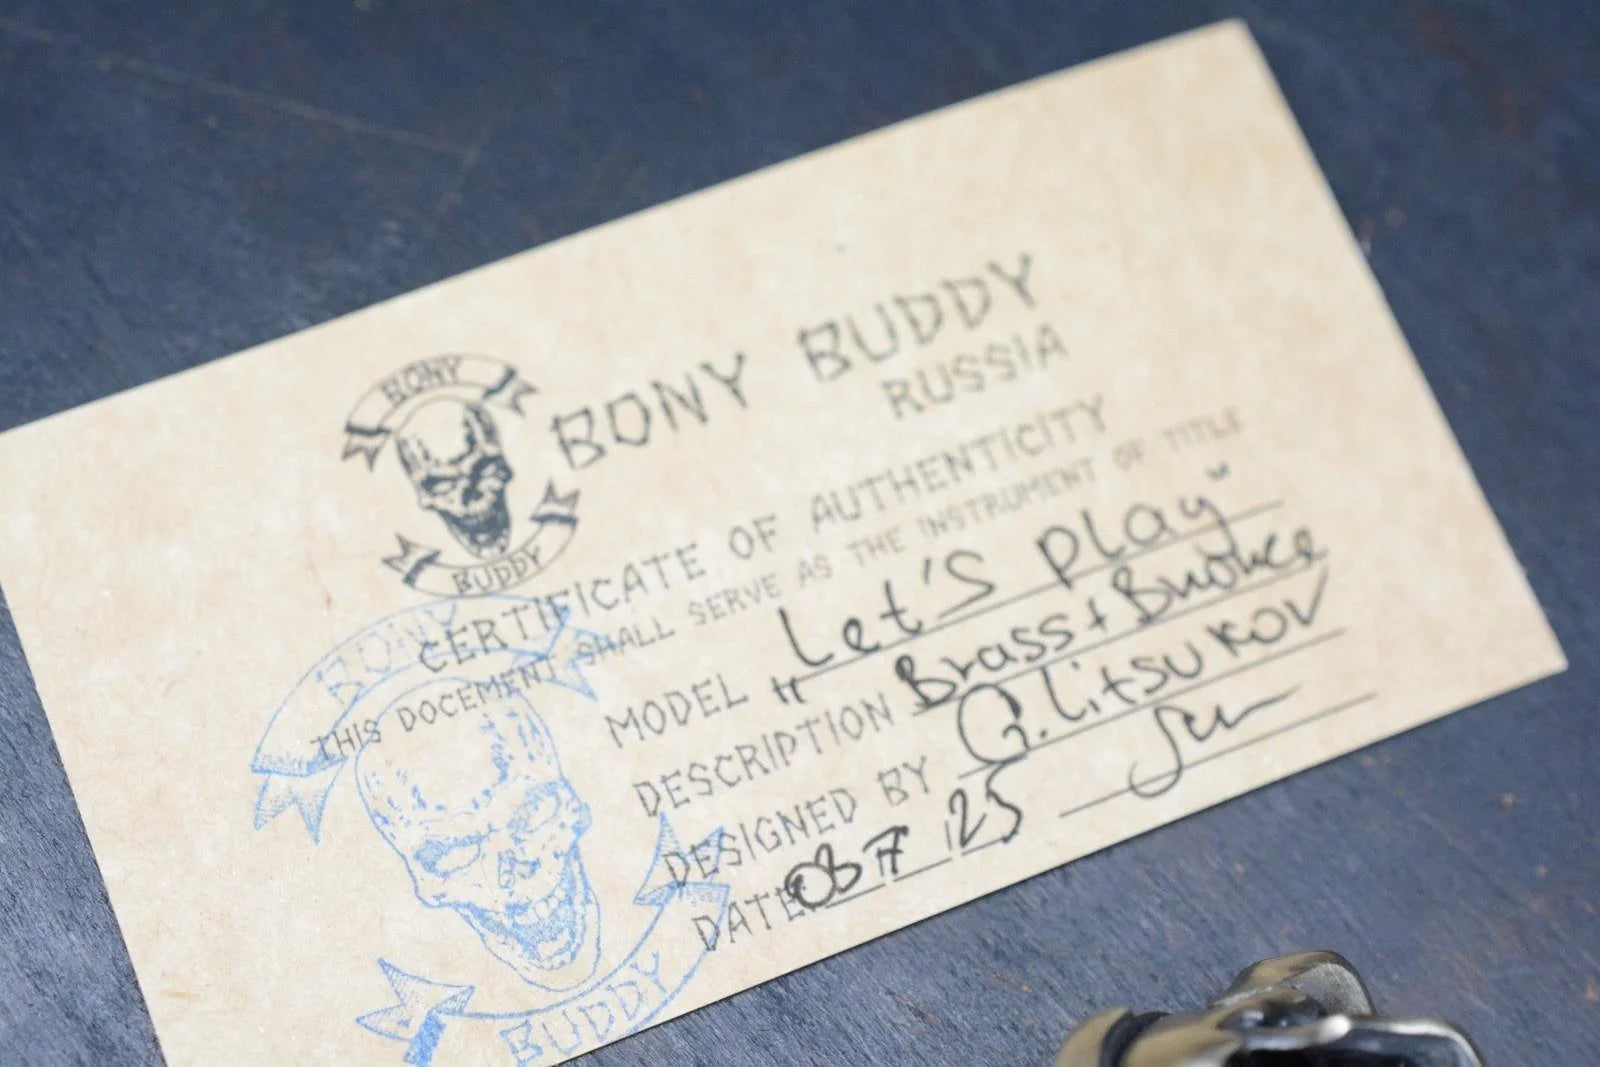 BONY
BUDDY
BONY BUDDY
RUSSIA
CERTIFICATE OF AUTHENTICITY
THIS DOCEMENT SHALL SERVE AS THE INSTRUMENT OF TITLE
MODEL "Let's play"
DESCRIPTION Brass +
DESIGNED BY G. Litsukov
DATE 25
BONY
BUDDY